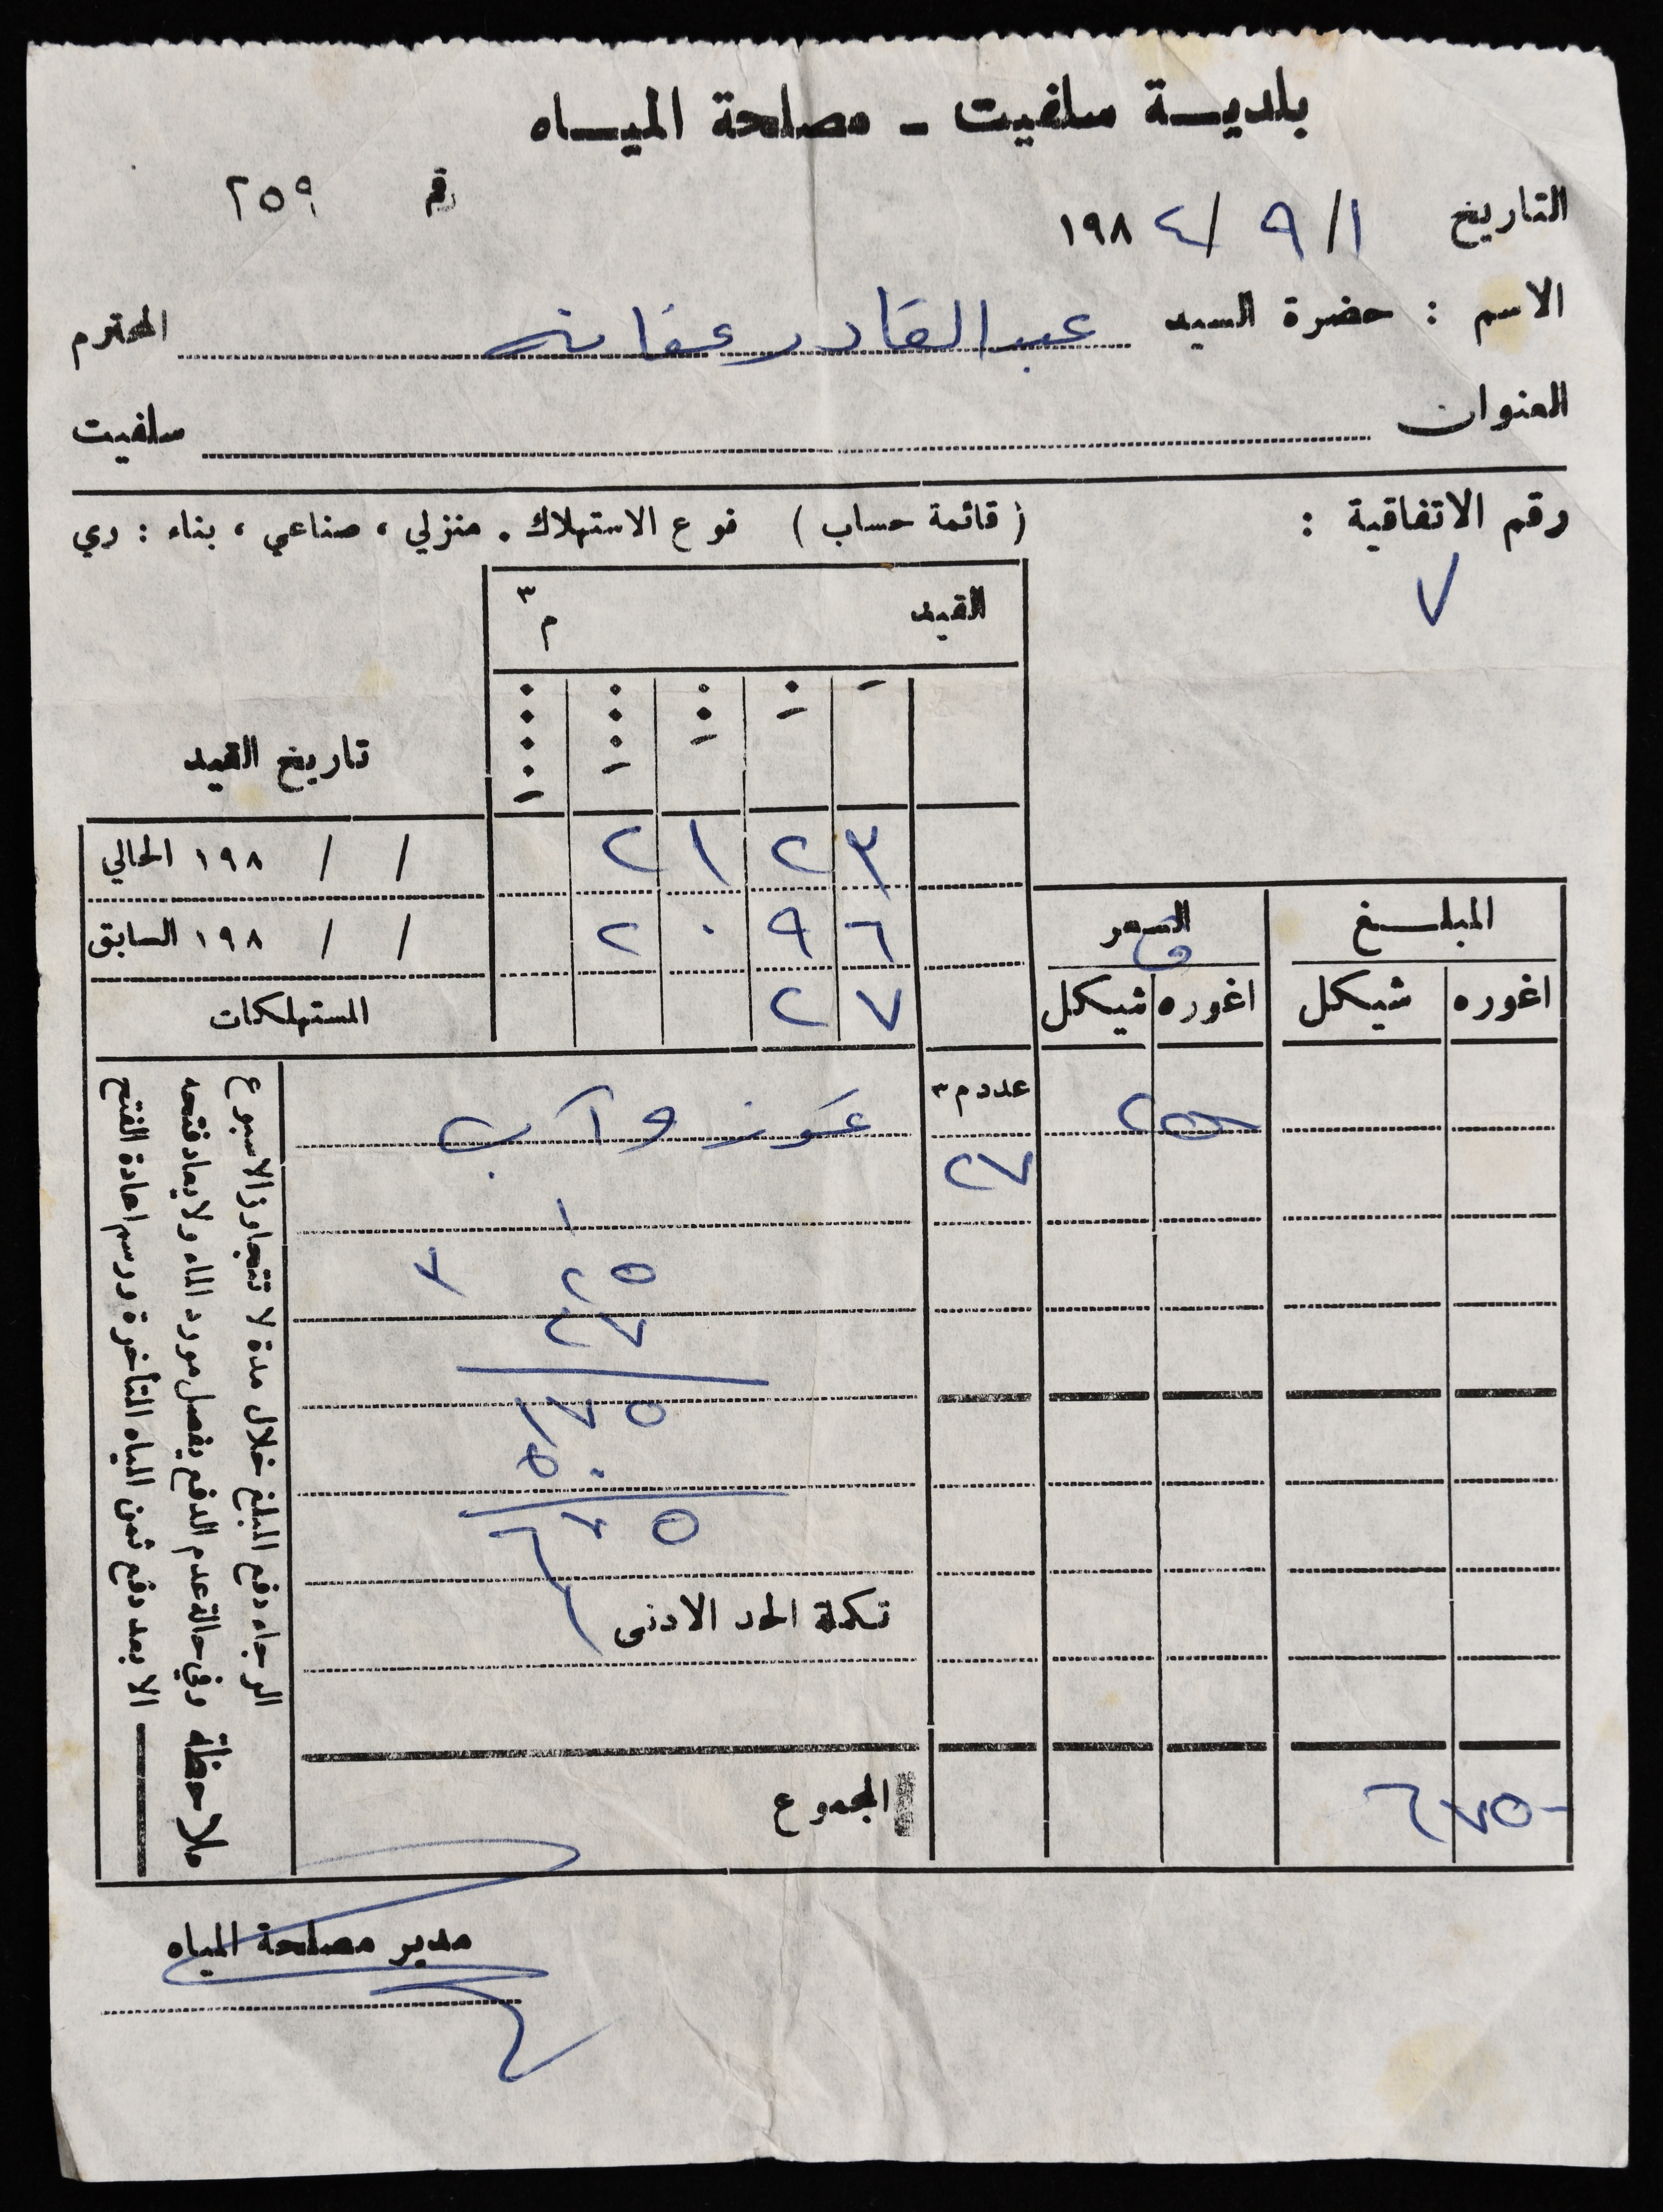 بلديـــة سلفيت - مصلحة الميـــاه
رقم ٢٥٩
التاريخ ١ / ٩ / ١٩٨٤
الاسم : حضرة السيد عبد القادر عفانه المحترم
العنوان سلفيت
رقم الاتفاقية : ( قائمة حساب ) نوع الاستهلاك . منزلي ، صناعي ، بناء : ري
٧
القيد م٣
تاريخ القيد
٣ ٢ ١ ٢ / / ١٩٨ الحالي
٦ ٩ ٠ ٢ / / ١٩٨ السابق
٧ ٢ المستهلكات
المبلـــغ السعر
اغوره شيكل اغوره شيكل
عدد م٣
تموز وآب
٢٧
١
٢٥
٢٧
١٧٥
٥٠
٦٧٥
تكملة الحد الادنى
المجموع
٦٧٥-
ملاحظة
الرجاء دفع المبلغ خلال مدة لا تتجاوز الاسبوع
وفي حالة عدم الدفع يفصل مورد الماء ولا يعاد فتحه
الا بعد دفع ثمن المياه المتأخرة ورسم اعادة الفتح
مدير مصلحة المياه